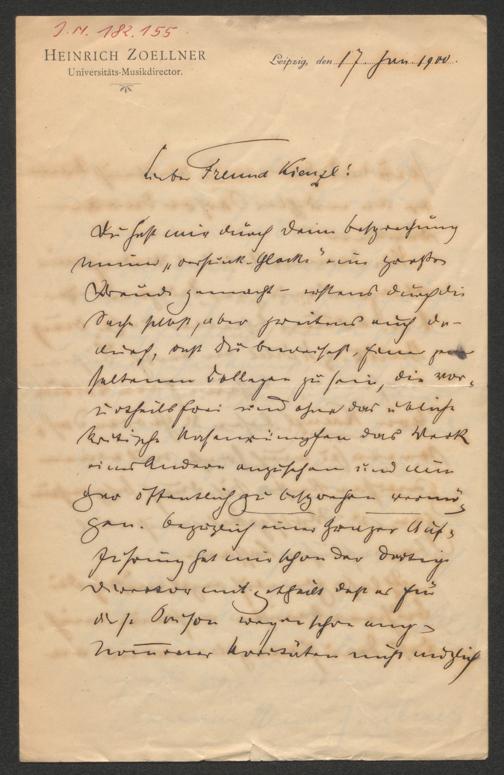 J.N. 182.155
HEINRICH ZOELLNER
Universitäts-Musikdirector.
Leipzig, den 17 Jan 1900.
Lieber Freund Kienzl!
Du hast mir durch Deine Besprechung
meiner „versunk. Glocke" eine große
Freude gemacht – erstens durch die
Sache selbst, aber zweitens auch da-
durch, daß Du beweisest, einer jener
seltenen Collegen zu sein, die vor-
urtheilsfrei und ohne das übliche
kritische Nasenrümpfen das Werk
eines Andern anzusehen und nun
gar öffentlich zu besprechen vermö-
gen. Bezüglich einer Grazer Auf-
führung hat mir schon der dortige
Director mitgetheilt daß es für
diese Saison wegen schon ange-
nommener Novitäten nicht möglich